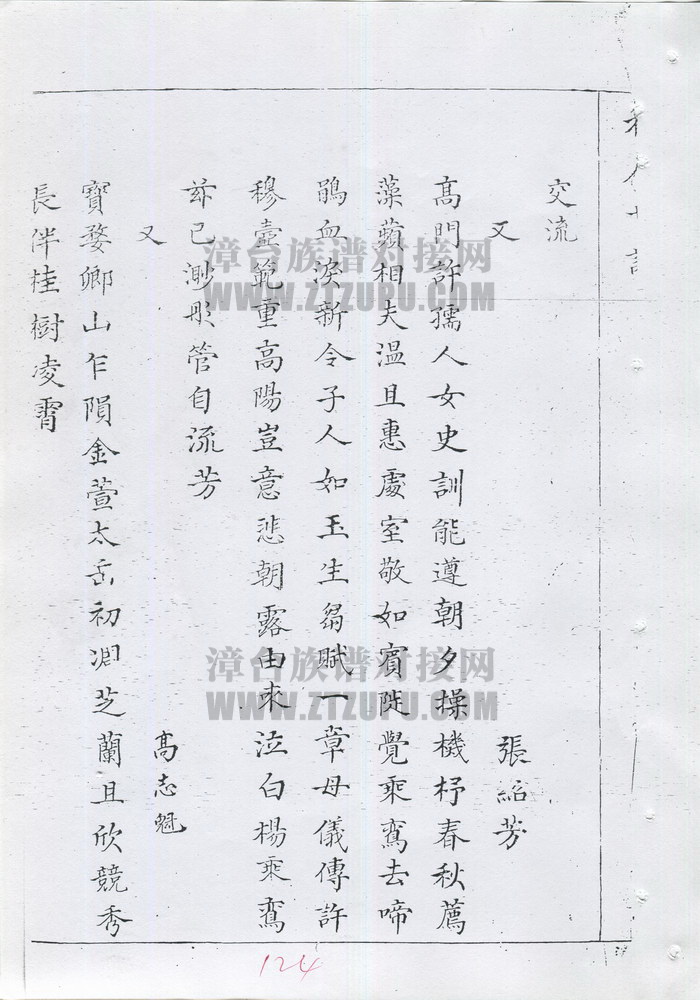 交流
又 張紹芳
高門許孺人女史訓能遵朝夕操機杼春秋薦
藻蘋相夫溫且惠處室敬如賓陡覺乘鸞去啼
鵑血淚新令子人如玉生芻賦一章母儀傳許
穆壼範重高陽豈意悲朝露由來泣白楊乘鸞
茲已渺彤管自流芳
又 髙志魁
寶婺卿山乍隕金萱太岳初凋芝蘭且欣競秀
長伴桂樹凌霄
漳台族谱对接网
WWW.ZTZUPU.COM
漳台族谱对接网
WWW.ZTZUPU.COM
124